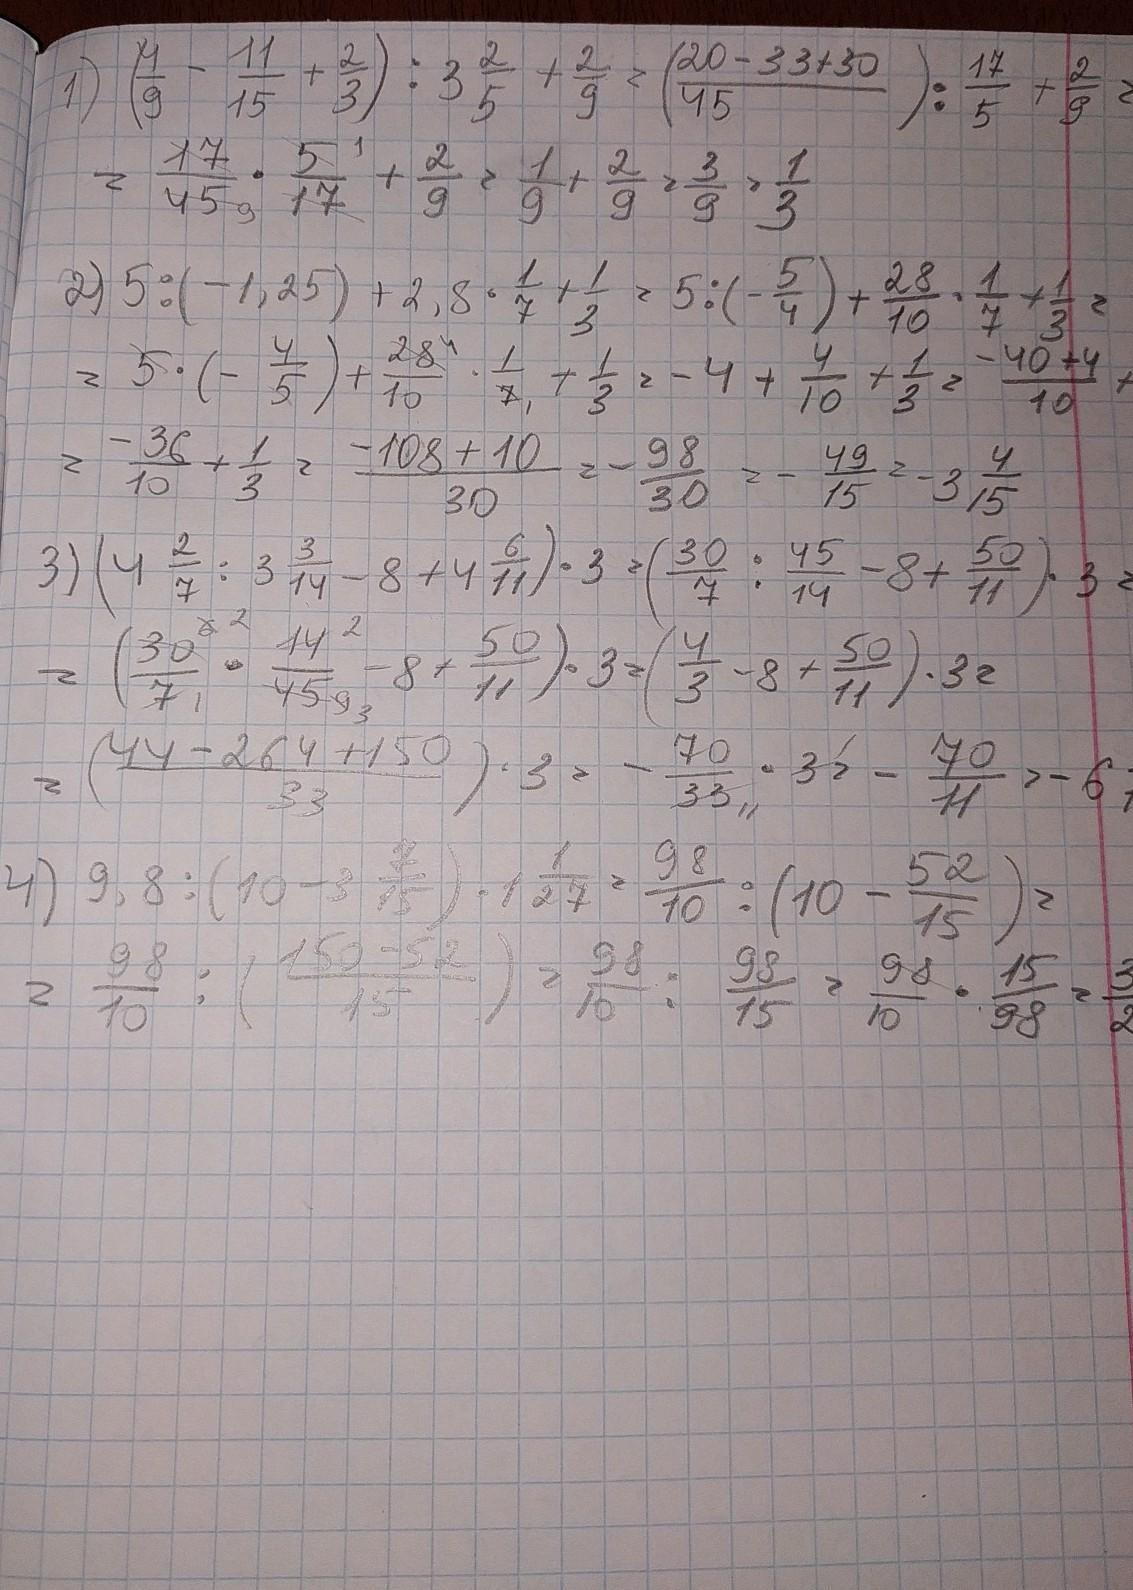 1) (4/9 - 11/15 + 2/3) : 3 2/5 + 2/9 = ((20-33+30)/45) : 17/5 + 2/9 =
= 17/45 9 · 5/17 1 + 2/9 = 1/9 + 2/9 = 3/9 = 1/3
2) 5:(-1,25) + 2,8 · 1/7 + 1/3 = 5:(-5/4) + 28/10 · 1/7 + 1/3 =
= 5·(-4/5) + 28 4/10 · 1/7 1 + 1/3 = -4 + 4/10 + 1/3 = (-40+4)/10 +
= -36/10 + 1/3 = (-108+10)/30 = -98/30 = -49/15 = -3 4/15
3) (4 2/7 : 3 3/14 - 8 + 4 6/11) · 3 = (30/7 : 45/14 - 8 + 50/11) · 3 =
= (30 2/7 1 · 14 2/45 9 3 - 8 + 50/11) · 3 = (4/3 - 8 + 50/11) · 3 =
= ((44-264+150)/33) · 3 = -70/33 11 · 3 1 = -70/11 = -6
4) 9,8 : (10 - 3 7/15) · 1 1/27 = 98/10 : (10 - 52/15) =
= 98/10 : ((150-52)/15) = 98/10 : 98/15 = 98/10 · 15/98 = 3/2